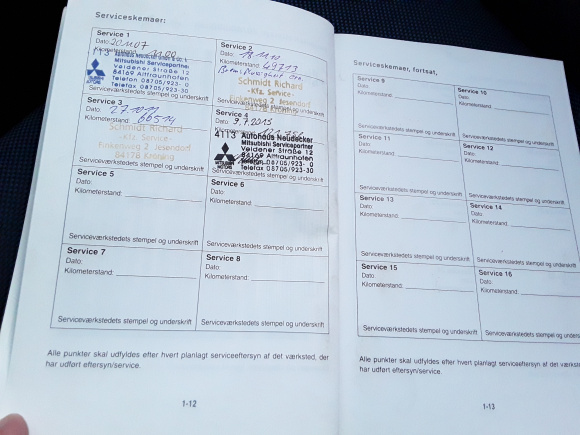 Serviceskemaer:
Service 1
Dato:
Kilometerstand:
4113 Autohaus Neudecker
Mitsubishi Servicepartner
Veldener Straße 12
84169 Altfraunhofen
Telefon 08705/923-0
Telefax 08705/923-30
Serviceværkstedets stempel og underskrift
Service 2
Dato:
Kilometerstand: 49713
Schmidt Richard
-Kfz. Service-
Finkenweg 2 Jesendorf
Serviceværkstedets stempel og underskrift
Service 3
Dato: 27.10.11
Kilometerstand: 66514
Schmidt Richard
-Kfz. Service-
Finkenweg 2 Jesendorf
84178 Kröning
Serviceværkstedets stempel og underskrift
Service 4
Dato: 9.7.2015
Kilometerstand:
4113 Autohaus Neudecker
Mitsubishi Servicepartner
Veldener Straße 12
84169 Altfraunhofen
Telefon 08705/923-0
Telefax 08705/923-30
Serviceværkstedets stempel og underskrift
Service 5
Dato:
Kilometerstand:
Serviceværkstedets stempel og underskrift
Service 6
Dato:
Kilometerstand:
Serviceværkstedets stempel og underskrift
Service 7
Dato:
Kilometerstand:
Serviceværkstedets stempel og underskrift
Service 8
Dato:
Kilometerstand:
Serviceværkstedets stempel og underskrift
Alle punkter skal udfyldes efter hvert planlagt serviceeftersyn af det værksted, der
har udført eftersyn/service.
1-12
Serviceskemaer, fortsat,
Service 9
Dato:
Kilometerstand:
Serviceværkstedets stempel og underskrift
Service 10
Dato:
Kilometerstand:
Serviceværkstedets stempel og
Service 11
Dato:
Kilometerstand:
Serviceværkstedets stempel og underskrift
Service 12
Dato:
Kilometerstand:
Serviceværkstedets stempel og
Service 13
Dato:
Kilometerstand:
Serviceværkstedets stempel og underskrift
Service 14
Dato:
Kilometerstand:
Serviceværkstedets stempel og
Service 15
Dato:
Kilometerstand:
Serviceværkstedets stempel og underskrift
Service 16
Dato:
Kilometerstand:
Serviceværkstedets stempel og
Alle punkter skal udfyldes efter hvert planlagt serviceeftersyn af det
har udført eftersyn/service.
1-13